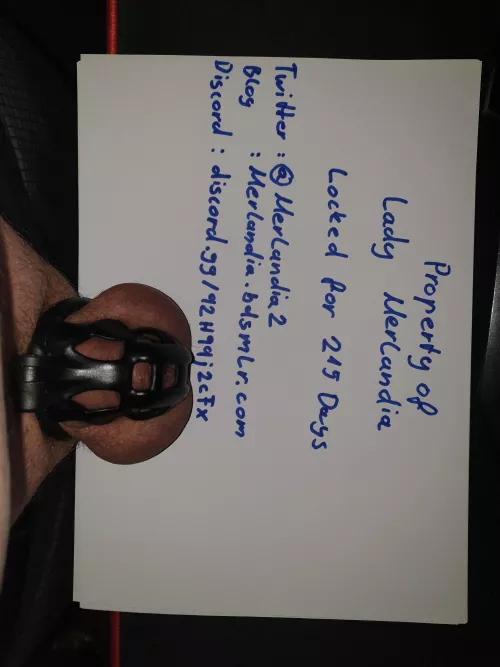 Property of
Lady MerLandia
Locked for 215 Days
Twitter : @MerLandia2
Blog : Merlandia.bdsmlr.com
Discord : discord.gg/92H9qj2cFx